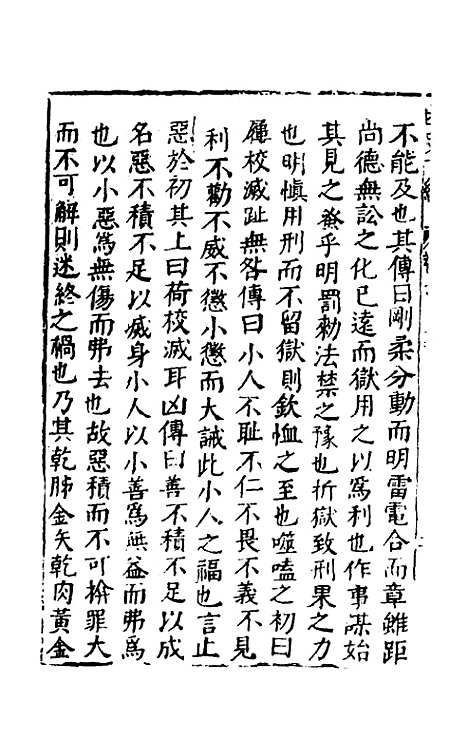 不能及也其傳曰剛柔分動而明雷電合而章雖距
尚德無訟之化已遠而獄用之以爲利也作事謀始
其見之蚤乎明罰勑法禁之豫也折獄致刑果之力
也明愼用刑而不留獄則欽恤之至也噬嗑之初曰
屨校滅趾無咎傳曰小人不耻不仁不畏不義不見
利不勸不威不懲小懲而大誡此小人之福也言止
惡於初其上曰荷校滅耳凶傳曰善不積不足以成
名惡不積不足以滅身小人以小善爲無益而弗爲
也以小惡爲無傷而弗去也故惡積而不可揜罪大
而不可解則迷終之禍也乃其乾胏金矢乾肉黃金